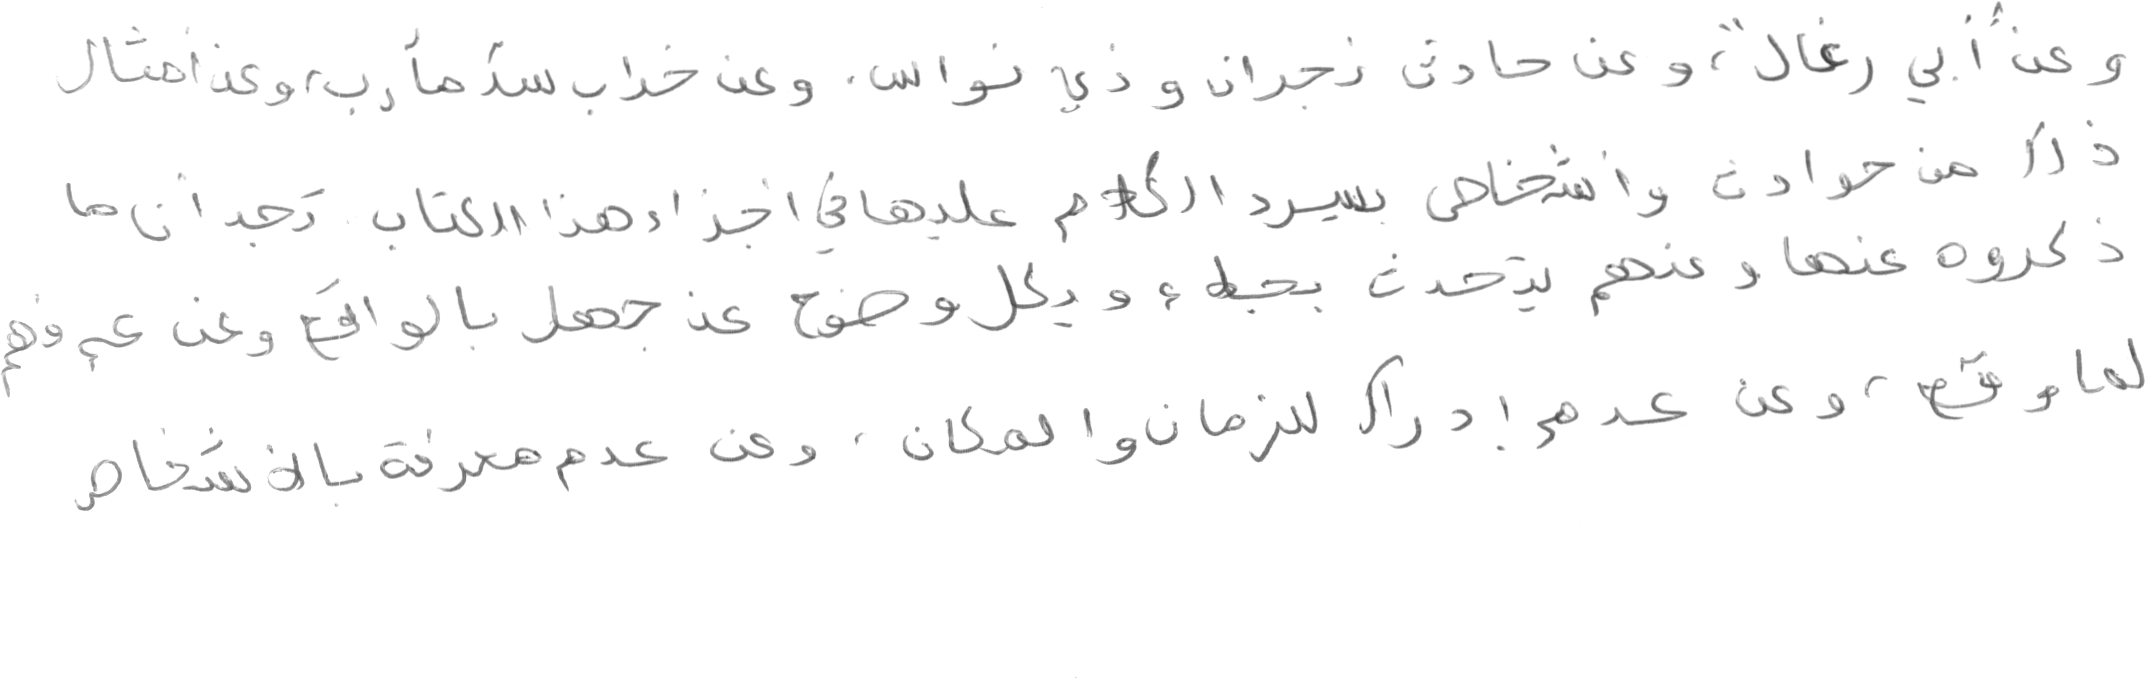 وعن "أبي رغال"، وعن حادث نجران وذي نواس، وعن خراب سدّ مأرب، وعن أمثال
ذلك من حوادث وأشخاص سيرد الكلام عليها في أجزاء هذا الكتاب. تجد أن ما
ذكروه عنها وعنهم يتحدث بجلاء وبكل وضوح عن جهل بالواقع وعن عدم فهم
لما وقع، وعن عدم إدراك للزمان والمكان، وعن عدم معرفة بالأشخاص